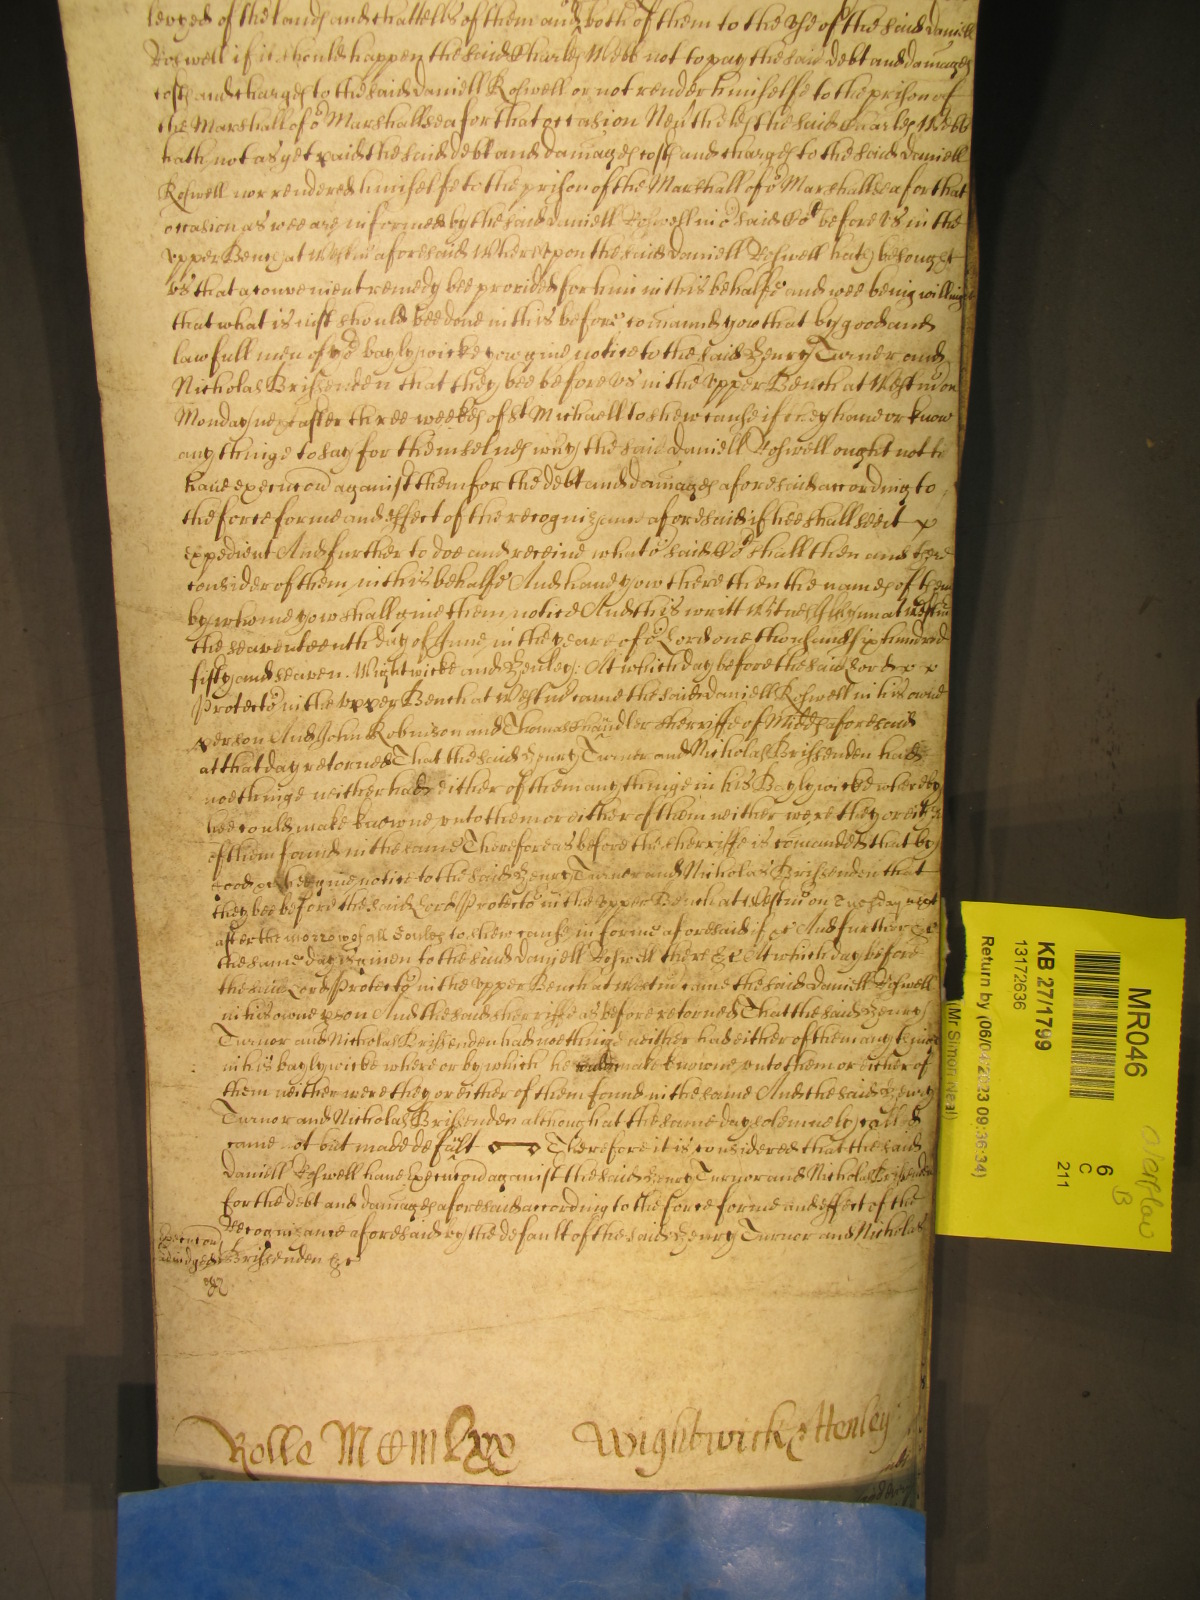 levyed of the lands and chattells of them and both of them to the use of the said Daniell
Roswell if it should happen the said Charles Webb not to pay the said debt and damages
costs and charges to the said Daniell Roswell or not render himselfe to the prison of
the Marshall of oᵉ Marshallsea for that occasion Neũtheles the said Charles Webb
hath not as yet paid the said debt and damages costs and charges to the said Daniell
Roswell nor rendered himselfe to the prison of the Marshall of oᵉ Marshallsea for that
occasion as wee are informed by the said Daniell Roswell in oᵉ said Coᵗ before us in the
upper Bench at Westm̃ aforesaid Whereupon the said Daniell Roswell hath besought
us that a convenient remedy bee provided for him in this behalfe and wee being willing
that what is just should bee done in this behalfe com̃and yow that by good and
lawfull men of yoᵉ baylywicke yow give notice to the said Henry Turner and
Nicholas Brissenden that they bee before us in the upper Bench at Westm̃ on
Monday next after three weekes of Sᵗ Michaell to shew cause if they have or know
any thinge to say for themselves why the said Daniell Roswell ought not to
have execucoñ against them for the debt and damages aforesaid according to
the force forme and effect of the recognizance aforesaid if hee shall see it x
expedient And further to doe and receive what oᵉ said Coᵗ shall then and there
consider of them in this behalfe And have yow there then the names of them
by whome yow shall give them notice And this writt Witnes at Westm̃
the seaventeenth day of June in the yeare of oᵉ Lord one thousand six hundred
fifty and seaven. Wightwicke and Henley: At which day before the said Lord x x
Protectoᵉ in the upper Bench at Westm̃ came the said Daniell Roswell in his owne
person And John Robinson and Thomas Chandler Sherriffe of Midd̃ aforesaid
at that day retorned That the said Henry Turner and Nicholas Brissenden had
noethinge neither had either of them any thinge in his Baylywicke whereby
hee could make knowne unto them or either of them neither were they or either
of them found in the same Therefore as before the sherriffe is com̃anded that by
good &c hee give notice to the said Henry Turner and Nicholas Brissenden that
they bee before the said Lord Protectoᵉ in the upper Bench at Westm̃ on Tuesday next
after the morrow of all Soules to shew cause in forme aforesaid if &c And further &c
the same day is given to the said Daniell Roswell there &c At which day before
the said Lord Protectoᵉ in the upper Bench at Westm̃ came the said Daniell Roswell
in his owne pson And the said sherriffe as before retorned That the said Henry
Turnor and Nicholas Brissenden had noethinge neither had either of them any thinge
in his baylywicke where or by which he could make knowne unto them or either of
them neither were they or either of them found in the same And the said Henry
Turnor and Nicholas Brissenden although at the same day solemnely called
came not but made default Therefore it is considered that the said
Daniell Roswell have Execucoñ against the said Henry Turnor and Nicholas Brissenden
for the debt and damages aforesaid according to the force forme and effect of the
Recognizance aforesaid by the default of the said Henry Turnor and Nicholas
Execucoñ
adiudged
Brissenden &c
Rolle
Wightwick & Henley
MR046
6
C
211
KB 27/1799
13172636
Return by (06/04/2023 09:36:34)
(Mr Simon Neal)